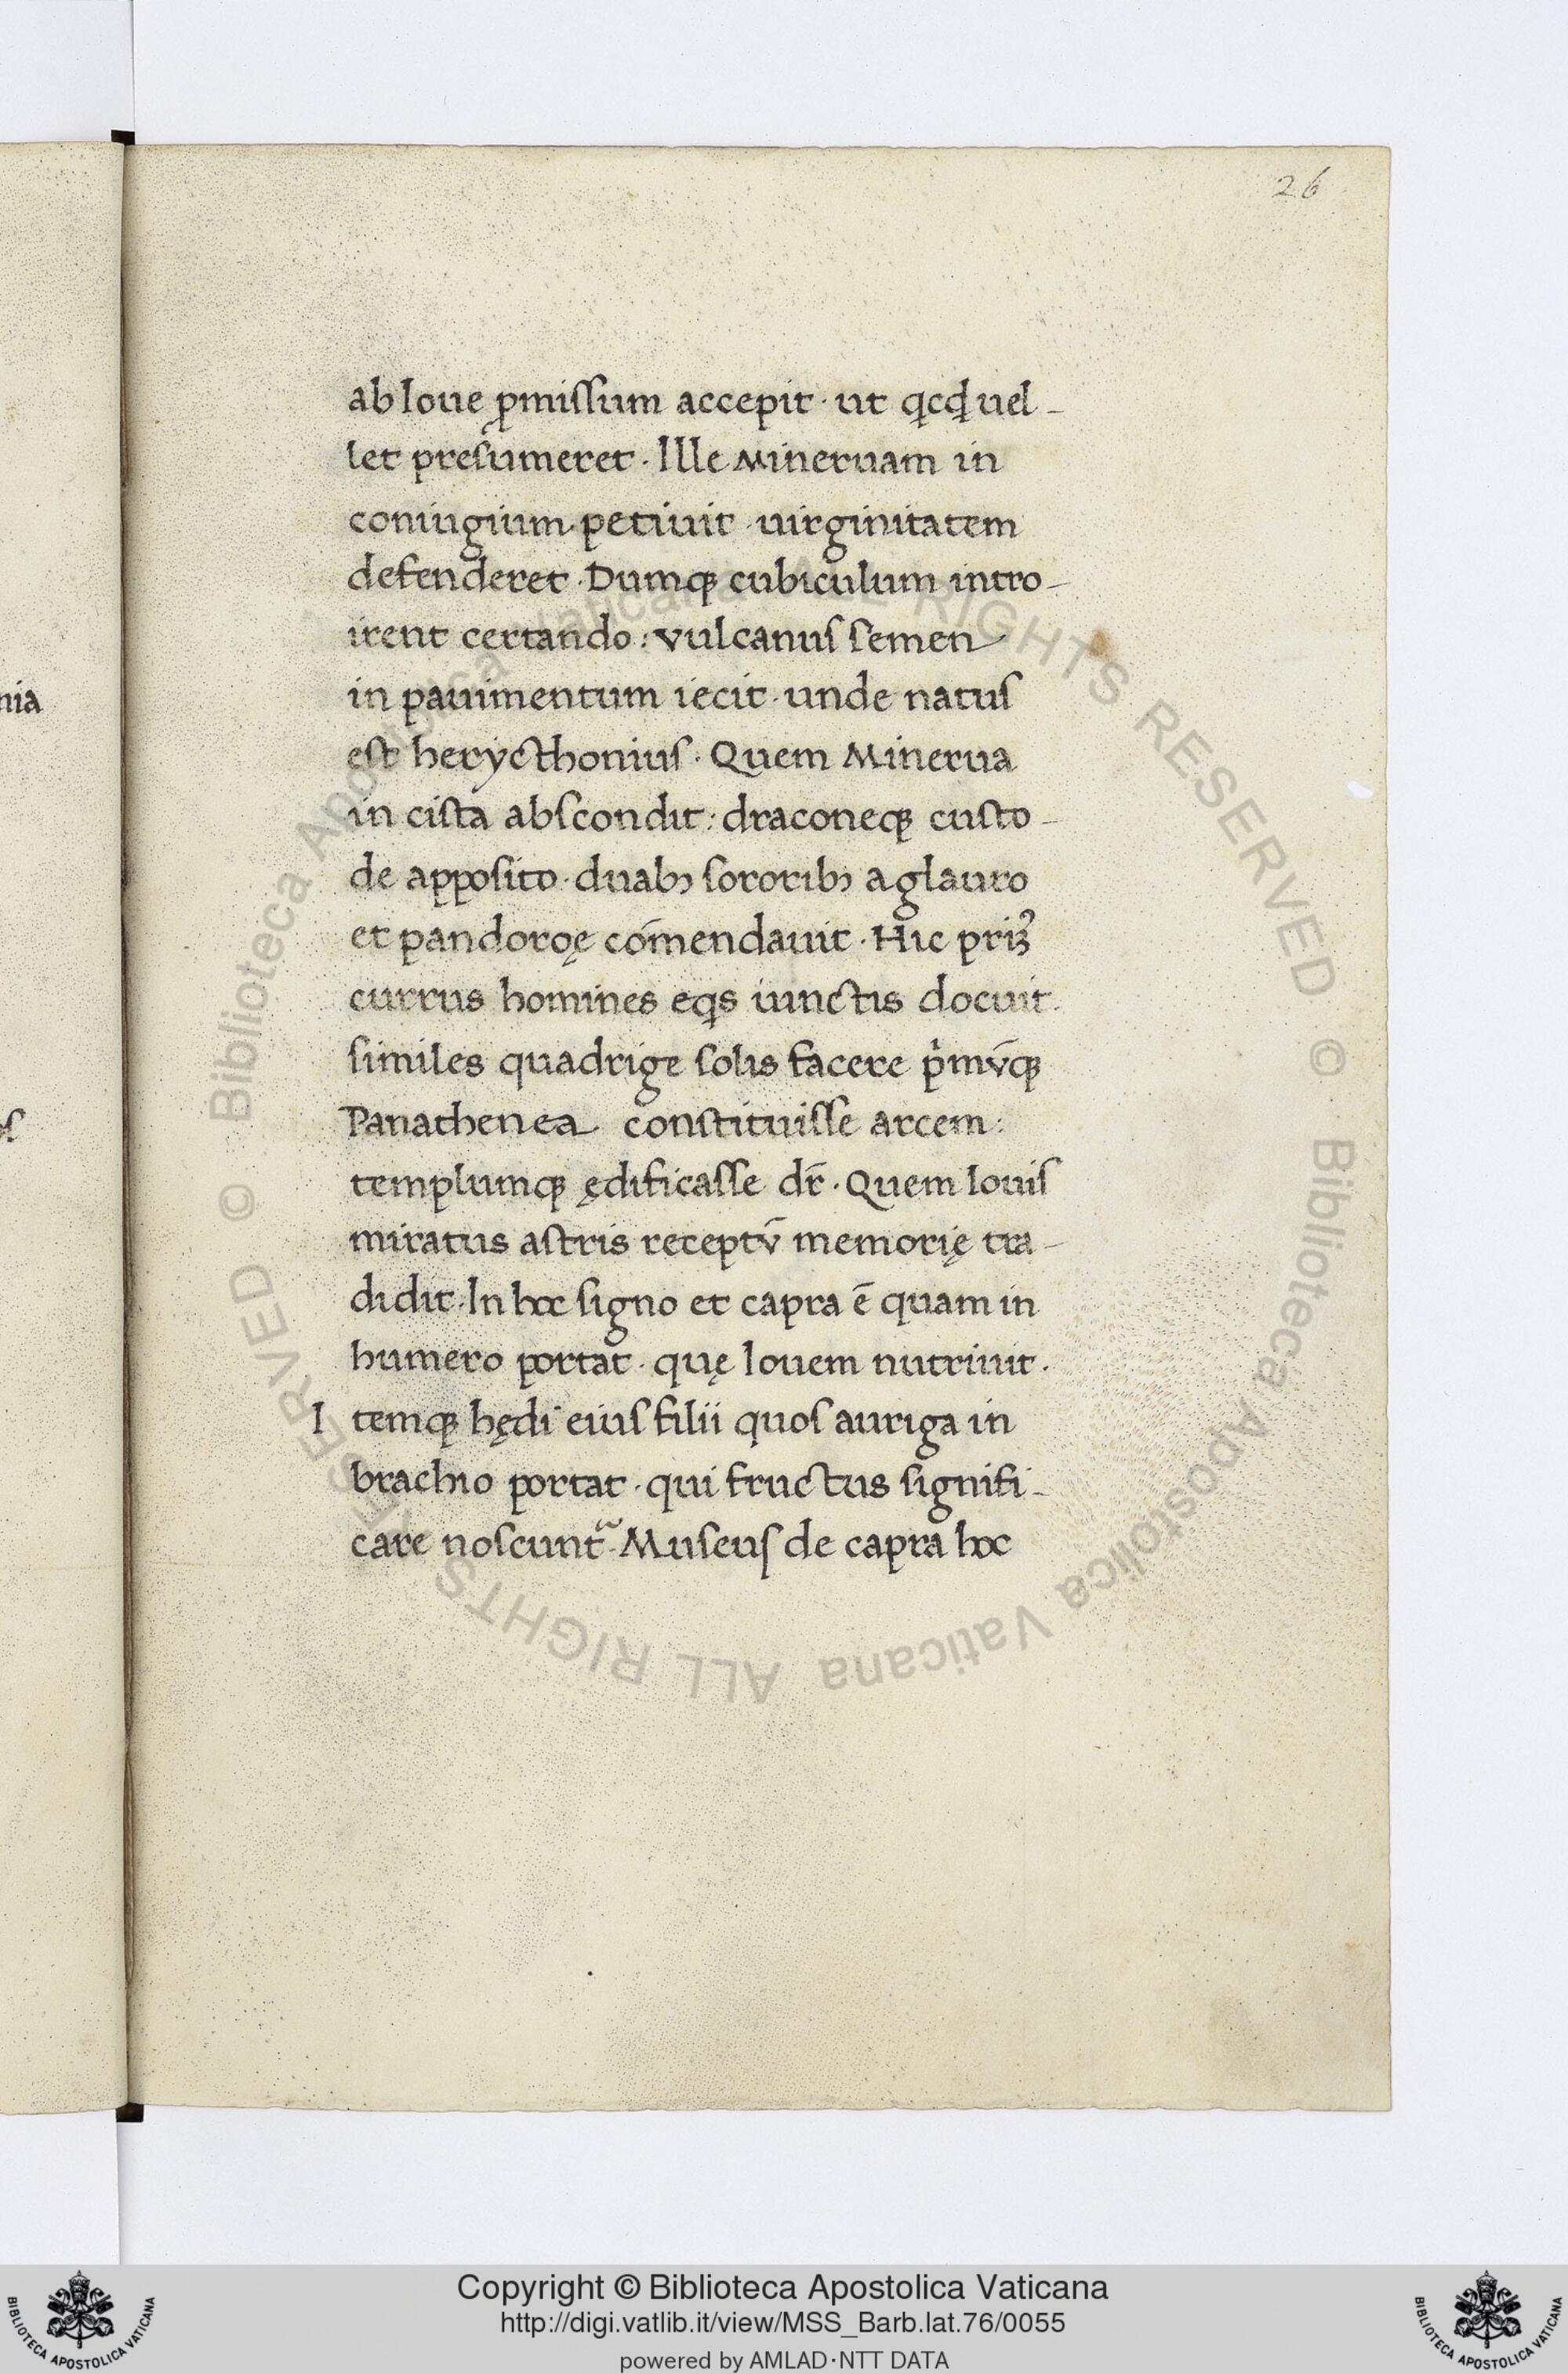 26
ab Ioue ꝓmiſſum accepit · ut qcqđ uel-
let preſumeret · Ille Mineruam in
coniugium petiuit · uirginitatem
defenderet · Dumqꝫ cubiculum intro-
irent certando : vulcanuſ ſemen
in pauimentum iecit · unde natuſ
eſt herycthoniuſ · Quem Minerua
in ciſta abſcondit : draconeqꝫ cuſto-
de appoſito · duabꝫ ſororibꝫ aglauro
et pandoroę cōmendauit · Hic
currus homines eqs iunctis docuit
ſimiles quadrige ſolis facere pͥmv̄qꝫ
Panathenea conſtituiſſe arcem :
templumqꝫ ędificaſſe dr̄ · Quem Iouiſ
miratus aſtris receptv̄ memorię tra-
didit · In hoc ſigno et capra ē quam in
humero portat · quę Iouem nutriuit ·
I temqꝫ hędi eiuſ filii quoſ auriga in
brachio portat · qui fructus ſignifi-
care noſcunt᷑ · Muſeuſ de capra hoc
nia
oſ
© Biblioteca Apostolica Vaticana ALL RIGHTS RESERVED © Biblioteca Apostolica Vaticana ALL RIGHTS RESERVED
Copyright © Biblioteca Apostolica Vaticana
http://digi.vatlib.it/view/MSS_Barb.lat.76/0055
powered by AMLAD·NTT DATA
BIBLIOTECA APOSTOLICA VATICANA
BIBLIOTECA APOSTOLICA VATICANA